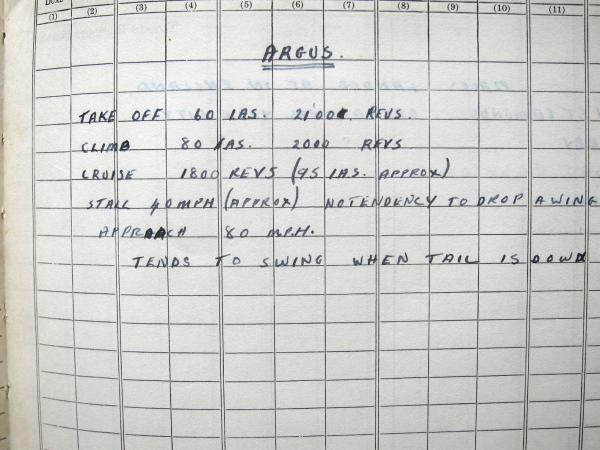 (1) (2) (3) (4) (5) (6) (7) (8) (9) (10) (11)
ARGUS.
TAKE OFF 60 IAS. 2100 REVS.
CLIMB 80 IAS. 2000 REVS
CRUISE 1800 REVS (95 IAS. APPROX)
STALL 40 MPH (APPROX) NO TENDENCY TO DROP A WING
APPROACH 80 MPH.
TENDS TO SWING WHEN TAIL IS DOWN